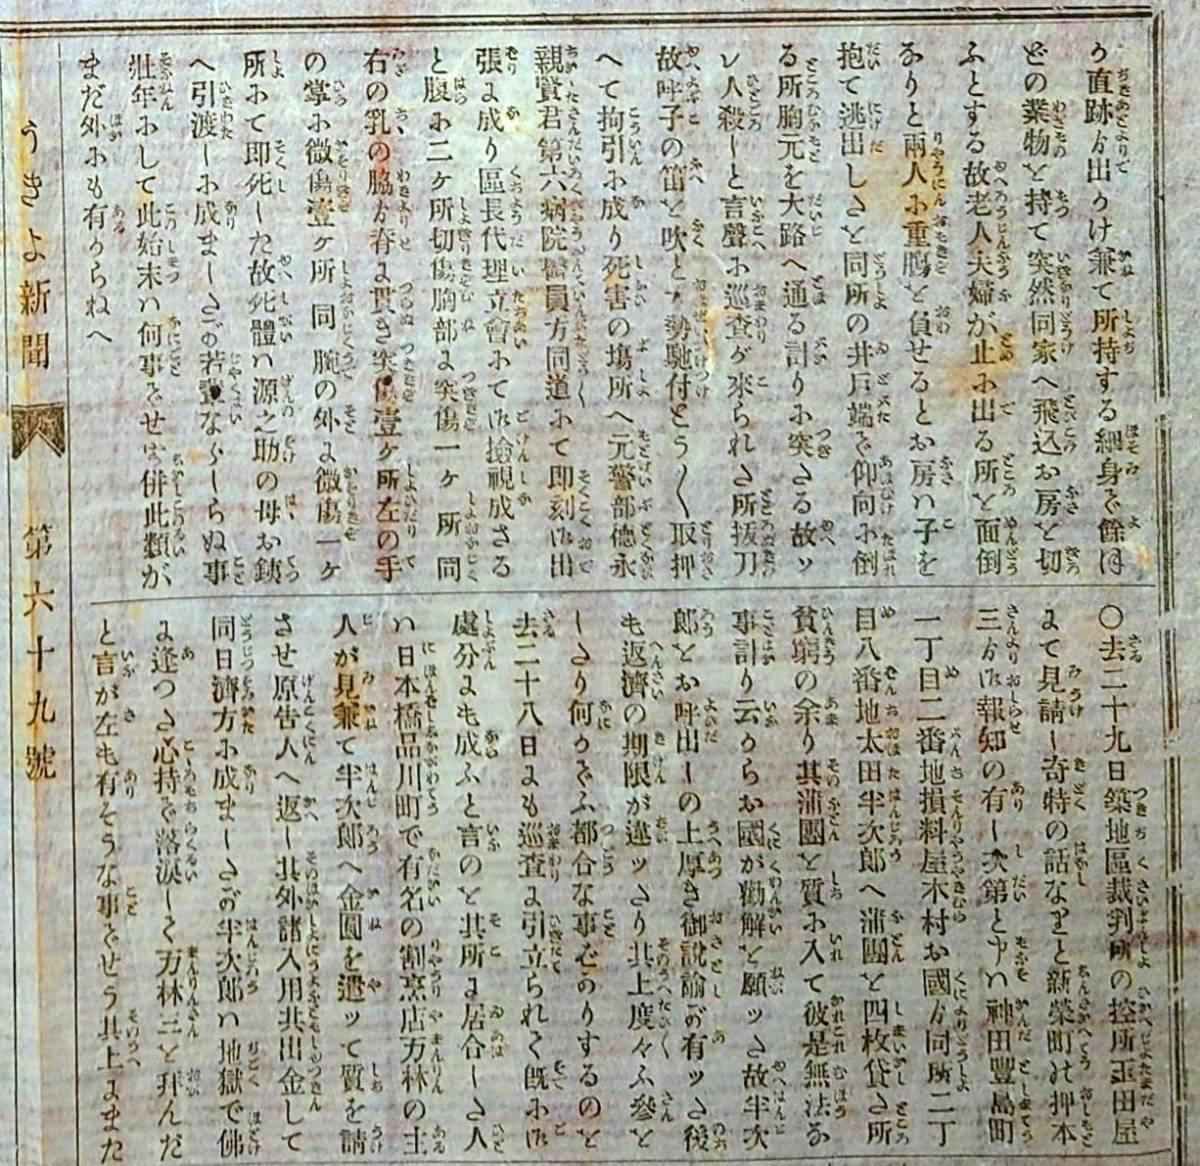 直跡ゟ出かけ兼て所持する細身で餘ほ
どの業物を持て突然同家へ飛込お房を切
ふとする故老人夫婦が止に出る所を面倒
なりと兩人に重膓を負せるとお房ハ子を
抱て逃出しさを同所の井戸端で仰向に倒
る所胸元を大路へ通る計りに突さる故ッ
レ人殺しと言聲に巡査が來られさ所拔刀
故呼子の笛を吹と大勢馳付とう〳〵取押
へて拘引に成り死害の塲所へ元警部德永
親賢君第六病院醫員方同道にて即刻御出
張に成り區長代理立會にて御撿視成さる
と腹に二ケ所切傷胸部に突傷一ケ所同
右の乳の脇ゟ脊に貫き突傷壹ケ所左の手
の掌に微傷壹ケ所同腕の外に微傷一ケ
所にて即死した故死體ハ源之助の母お鉄
へ引渡しに成ましさが若輩ならしらぬ事
壯年にして此始末ハ何事でせは併此類が
まだ外にも有からねへ
〇去二十九日築地區裁判所の控所玉田屋
にて見請し奇特の話なりと新榮町の押本
三ゟ御報知の有し次第と申ハ神田豐島町
一丁目二番地損料屋木村お國ゟ同所二丁
目八番地太田半次郎へ蒲團を四枚貸さ所
貧窮の余り其蒲團を質に入て彼是無法な
事計り云からお國が勸解を願ッさ故半次
郎をお呼出しの上厚き御說諭が有ッさ後
も返濟の期限が違ッさり其上度々ふ參を
しさり何かでふ都合な事をのりするのを
去二十八日にも巡査に引立られて既に御
處分にも成ふと言のを其所に居合しさ人
ハ日本橋品川町で有名の割烹店万林の主
人が見兼て半次郎へ金圓を遣ッて質を請
させ原告人へ返し其外諸入用共出金して
同日濟方に成ましさが半次郎ハ地獄で佛
に逢つさ心持で落淚しく万林三を拜んだ
と言が左も有そうな事でせう其上にまた
うきよ新聞
第六十九號